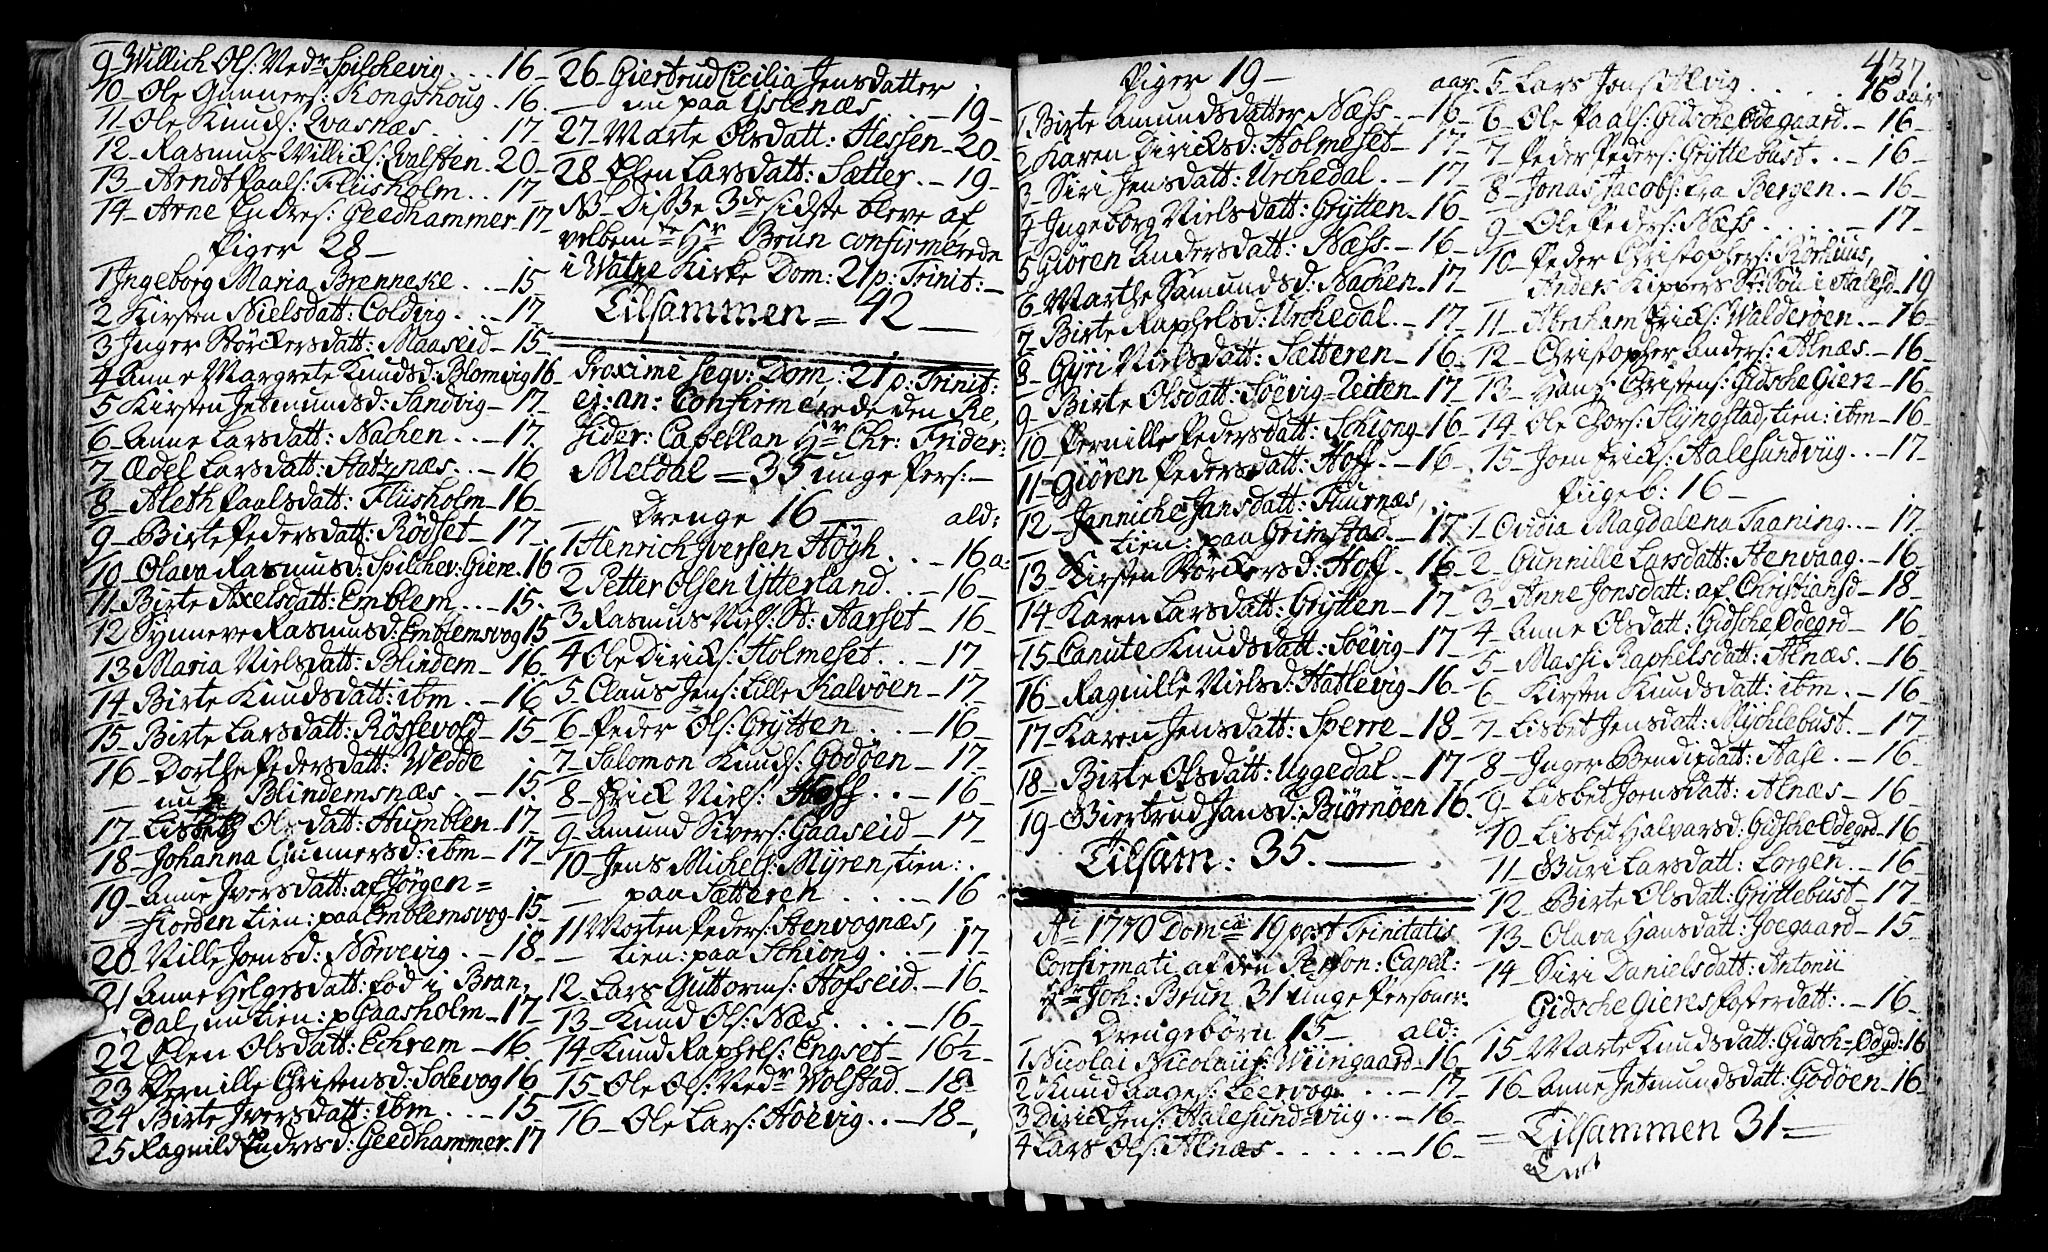 9 Willich Ols: Nedr Spilchevig . . . 16 -
10 - Ole Gunners: Kongshoug . 16. -
11 - Ole Knuds: Qvasnæs . . . . 17. -
12 - Rasmus Willicks: Qvalsten . 20 -
13 - Arndt Paals: Fliisholm . . 17 -
14 - Arne Endres: Geedhammer . 17 -
Piger 28 -
1 Ingeborg Maria Brenneke . . . - 15
2 Kirsten Nielsdatt: Coldvig . . . - 17
3 Inger Störckersdatt: Maaseid - 15 -
4 Anne Margrete Knudsd: Blomvig 16 -
5 Kirsten Jetmundsd: Sandvig - 17 -
6 - Anne Larsdatt: Nachen . . - 17.
7 - Ædel Larsdatt: Statznæs . . - 16
8 - Aleth Paalsdatt: Fliisholm - 16 -
9 - Birte Pedersdatt: Rödset - 17.
10 - Olava Rasmusd: Spilchev: Giere . 16
11 - Birte Axelsdatt: Emblem . . - 15.
12 Synneve Rasmusd: Emblemsvog 15
13 Maria Nielsdatt: Blindem - 16.
14 Birte Knudsdatt: ibm - 16
15 - Birte Larsdatt: Rössevold - 15 -
16 - Dorthe Pedersdatt: Wedde
nu Blindemsnæs . . - 15.
17 - Lisbeth Olsdatt: Humblen - 17.
18 - Johanna Gunnersd: ibm - 17 -
19 - Anne Iversdatt: af Jörgen =
= fiorden tien: paa Emblemsvog 15 -
20 - Nille Joensd: Nörvevig . - 18.
21 Anne Helgesdatt: föd i Bran,
Dal, nu tien: p Gaasholm - 17 -
22 Elen Olsdatt: Echrem - 16.
23 Pernille Christensd: Solevog 16
24 Birte Iversdatt: ibm . . . - 15
25 Ragnild Endresd: Geedhammer . 17
26 - Giertrud Cicilia Jensdatter
nu paa Ystenæs . . - 19 -
27 - Marte Olsdatt: Hessen - 20 -
28 - Elen Larsdatt: Sætter . - 19 -
NB - Disse 3de sidste bleve af
velbemte Hr Brun confirmerede
i Watne Kirke Dom: 21 p: Trinit: -
Tilsammen = 42 -
Proxime seqv: Dom: 21 p: Trinit:
ej: an: Confirmerede den Re,
sider: Capellan Hr Chr: Frider:
Meldal = 35 unge Pers: -
Drenge 16 - ald:
1 Henrich Iversen Högh . . - 16 a:
2 Petter Olsen Ytterland . . - 16 -
3 Rasmus Niels: St: Aarset - 16 -
4 Ole Diricks: Holmeset . . - 17 -
5 Claus Jens: Lille Kalvöen - 17 -
6 - Peder Ols: Grytten . . - 16 -
7 - Salomon Knuds: Godöen - 17 -
8 - Erick Niels: Hoff . . - 16 -
9 - Amund Sivers: Gaaseid - 17 -
10 - Jens Michels: Myren, tien:
paa Sætteren . . . . - 16
11 Morten Peders: Henvognæs,
tien: paa Schiong . . - 17 -
12 - Lars Guttorms: Hofseid . - 16 -
13 - Knud Ols: Næs . . . . - 16 -
14 - Knud Raphels: Engset - 16½ -
15 - Ole Ols: Nedr Wolstad . - 18
16 - Ole Lars: Hoëvig . . - 18 -
Piger 19 - aar.
1 Birte Amundsdatter Næss . - 16 -
2 Karen Diricksd: Holmeset - 17 -
3 - Siri Jensdatt: Urchedal . - 17 -
4 - Ingeborg Nielsdatt: Grytten - 16 -
5 Giören Andersdatt: Næss . - 16 -
6 - Marthe Samundsd: Nachen . 17 -
7 - Birte Raphelsd: Urchedal . - 17 -
8 - Gyri Nielsdatt: Sætteren - 16.
9 - Birte Olsdatt: Söevig = Leiten - 17
10 - Pernille Pedersdatt: Schiong 16 -
11 - Giören Pedersdatt: Hoff . - 16 -
12 - Jannicke Jansdatt: Tuurnæs,
tien: paa Grimstad . - 17
13 - Kirsten Störckersd: Hoff . 16 -
14 - Karen Larsdatt: Grytten - 17 -
15 - Canute Knudsdatt: Söevig - 17 -
16 - Ragnille Nielsd: Hatlevig - 16 -
17 - Karen Jensdatt: Sperre - 18 -
18 - Birte Olsdatt: Uggedal . - 17 -
19 - Giertrud Jansd: Biörnöen 16.
Tilsam: 35. -
Ai 1770 Domca 19 post Trinitatis
Confirmati af den Person: Capell:
Hr Joh: Brun 31 unge Personer.
Drengebörn 15 - ald:
1 Nicolai Nicolaiis: Wiingaard - 16 -
2 Knud Aages: Leervog . . . . - 17 -
3 Dirick Jens: Aalesund = viig . . - 16 -
4 Lars Ols: Alnæs . . . . . - 16 -
437
5 - Lars Jens: Alvig . . . . . 16 aar
6 - Ole Paals: Gidsche Ødegaard . - 16 -
7 - Peder Peders: Gryttebust . . - 16 -
8 - Jonas Jacobs: fra Bergen . - 16 -
9 - Ole Peders: Næss . . . . . - 17 -
10 - Peder Christophers: Rörhuus,
Anders Kippers St: Sön i Aalesd - 19
11 - Abraham Ericks: Walderöen . - 16 -
12 - Christopher Anders: Alnæs . - 16 -
13 - Hans Christens: Gidsche Giere - 16 -
14 - Ole Thors: Slyngstad, tien: ibm - 16 -
15 - Joen Ericks: Aalesundviig . . - 17 -
Piigeb: 16 -
1 - Ovidia Magdalena Taaning . . - 17 -
2 - Gunnille Larsdatt: Henvaag - 16 -
3 - Anne Jonsdatt: af Christiansd - 18 -
4 - Anne Olsdatt: Gidsche Ødegrd - 16 -
5 - Massi Raphelsdatt: Alnæs . - 16 -
6 - Kirsten Knudsdatt: ibm . - 16 -
7 - Lisbet Jensdatt: Mychlebust . - 17 -
8 - Inger Bendixdatt: Aase . - 16 -
9 - Lisbet Joensdatt: Alnæs - 16 -
10 - Lisbet Halvarsd: Gidsche Ødegrd - 16
11 - Guri Larsdatt: Lorgen . . - 16 -
12 - Birte Olsdatt: Gryttebust - 17 -
13 - Olava Hansdatt: Joegaard - 15 -
14 - Siri Danielsdatt: Antonii
Gidsche Gieres fosterdatt: . - 16 -
15 - Marte Knudsdatt: Gidsch = Ødgd: 16
16 - Anne Jetmundsdatt: Godöen - 16 -
= Tilsammen 31 =